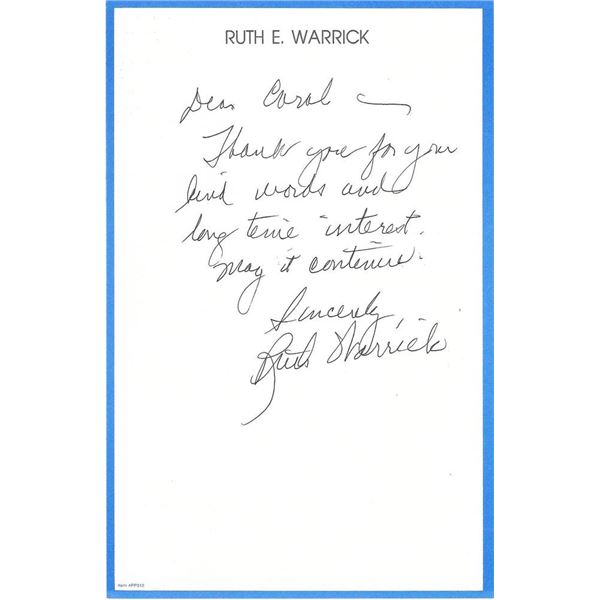 RUTH E. WARRICK
Dear Carol
Thank you for your
kind words and
long time interest.
May it continue.
Sincerely,
Ruth Warrick